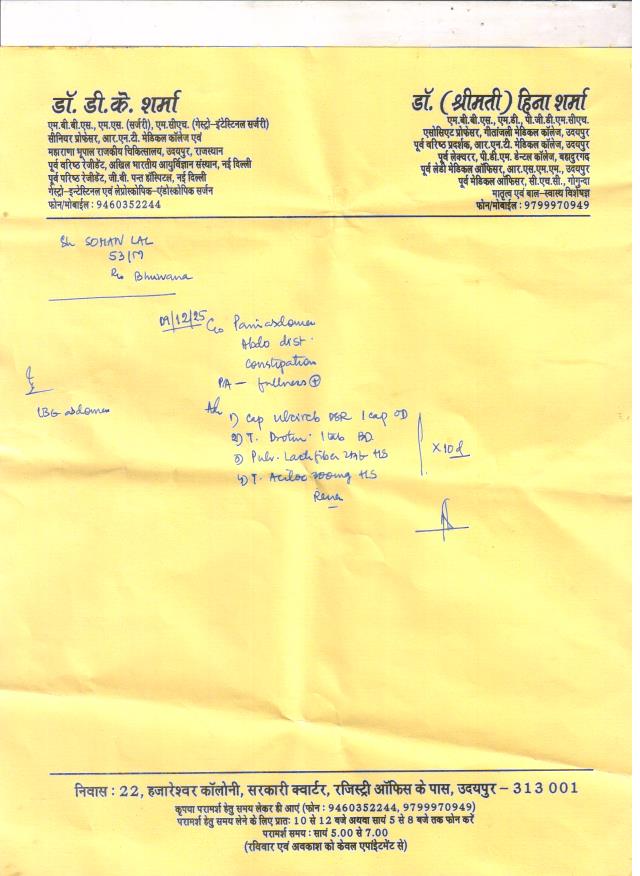 डॉ. डी.के. शर्मा
एम.बी.बी.एस., एम.एस. (सर्जरी), एम.सीएच. (गेस्ट्रो-इंटेस्टिनल सर्जरी)
सीनियर प्रोफेसर, आर.एन.टी. मेडिकल कॉलेज एवं
महाराणा भूपाल राजकीय चिकित्सालय, उदयपुर, राजस्थान
पूर्व वरिष्ठ रेजीडेंट, अखिल भारतीय आयुर्विज्ञान संस्थान, नई दिल्ली
पूर्व वरिष्ठ रेजिडेंट, जी.बी. पन्त हॉस्पिटल, नई दिल्ली
गेस्ट्रो-इन्टेस्टिनल एवं लेप्रोस्कोपिक-एंडोस्कोपिक सर्जन
फोन/मोबाईल : 9460352244
डॉ. (श्रीमती) हिना शर्मा
एम.बी.बी.एस., एम.डी., पी.जी.डी.एम.सीएच.
एसोसिएट प्रोफेसर, गीतांजली मेडिकल कॉलेज, उदयपुर
पूर्व वरिष्ठ प्रदर्शक, आर.एन.टी. मेडिकल कॉलेज, उदयपुर
पूर्व लेक्चरर, पी.डी.एम. डेन्टल कॉलेज, बहादुरगढ
पूर्व लेडी मेडिकल ऑफिसर, आर.एस.एम.एम., उदयपुर
पूर्व मेडिकल ऑफिसर, सी.एच.सी., गोगुन्दा
मातृत्व एवं बाल-स्वास्थ्य विशेषज्ञ
फोन/मोबाईल : 9799970949
Sh SOHAN LAL
53/M
R/o Bhuwana
09/12/25 C/o Pain abdomen
Abdo dist.
Constipation
PA - fullness ⊕
USG abdomen
Adv
1) Cap DSR 1 cap OD
2) T. Drotin. 1 tab BD
3) Pulv. Lactifiber HS
4) T. Aciloc 300mg HS
x 10d
निवास : 22, हजारेश्वर कॉलोनी, सरकारी क्वार्टर, रजिस्ट्री ऑफिस के पास, उदयपुर - 313 001
कृपया परामर्श हेतु समय लेकर ही आएं (फोन : 9460352244, 9799970949)
परामर्श हेतु समय लेने के लिए प्रातः 10 से 12 बजे अथवा सायं 5 से 8 बजे तक फोन करें
परामर्श समय : सायं 5.00 से 7.00
(रविवार एवं अवकाश को केवल एपांइटमेंट से)